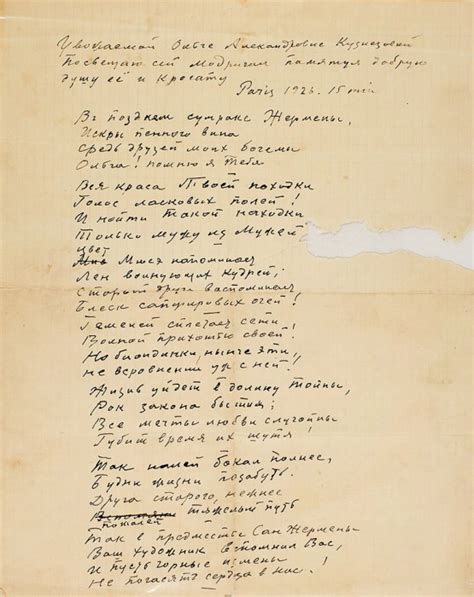 Уважаемой Ольге Александровне Кузнецовой
посвещаю сей Мадригал памятуя добрую
душу её и Красоту
Pariz 1926. 15
Въ позднем сумраке Жермены,
Искры пенного вина
Средь друзей моих богемы
Ольга! помню я Тебя
Вся краса Твоей походки
Голос ласковых полей!
И найти такой находки
Только мужу из Мужей
цвет
напоминает
Лен волнующих кудрей;
Старый друг воспоминает,
Блеск сапфировых очей!
сплетает сети
Волной прихотью своей!
Но блондинки, нынче эти
не вровнении уж с ней!
Жизнь уйдет в долину тайны,
Рок закона быстия;
Все мечты любви случайны
Губит время их шутя!
Так налей бокал полнее,
Будни жизни позабудь.
Друга старого, нежнее
тяжелый путь
пожалей
Так в предместье Сан Жермены
Ваш художник вспомнил Вас,
И пусть горные измены
Не погасят сердца в нас!